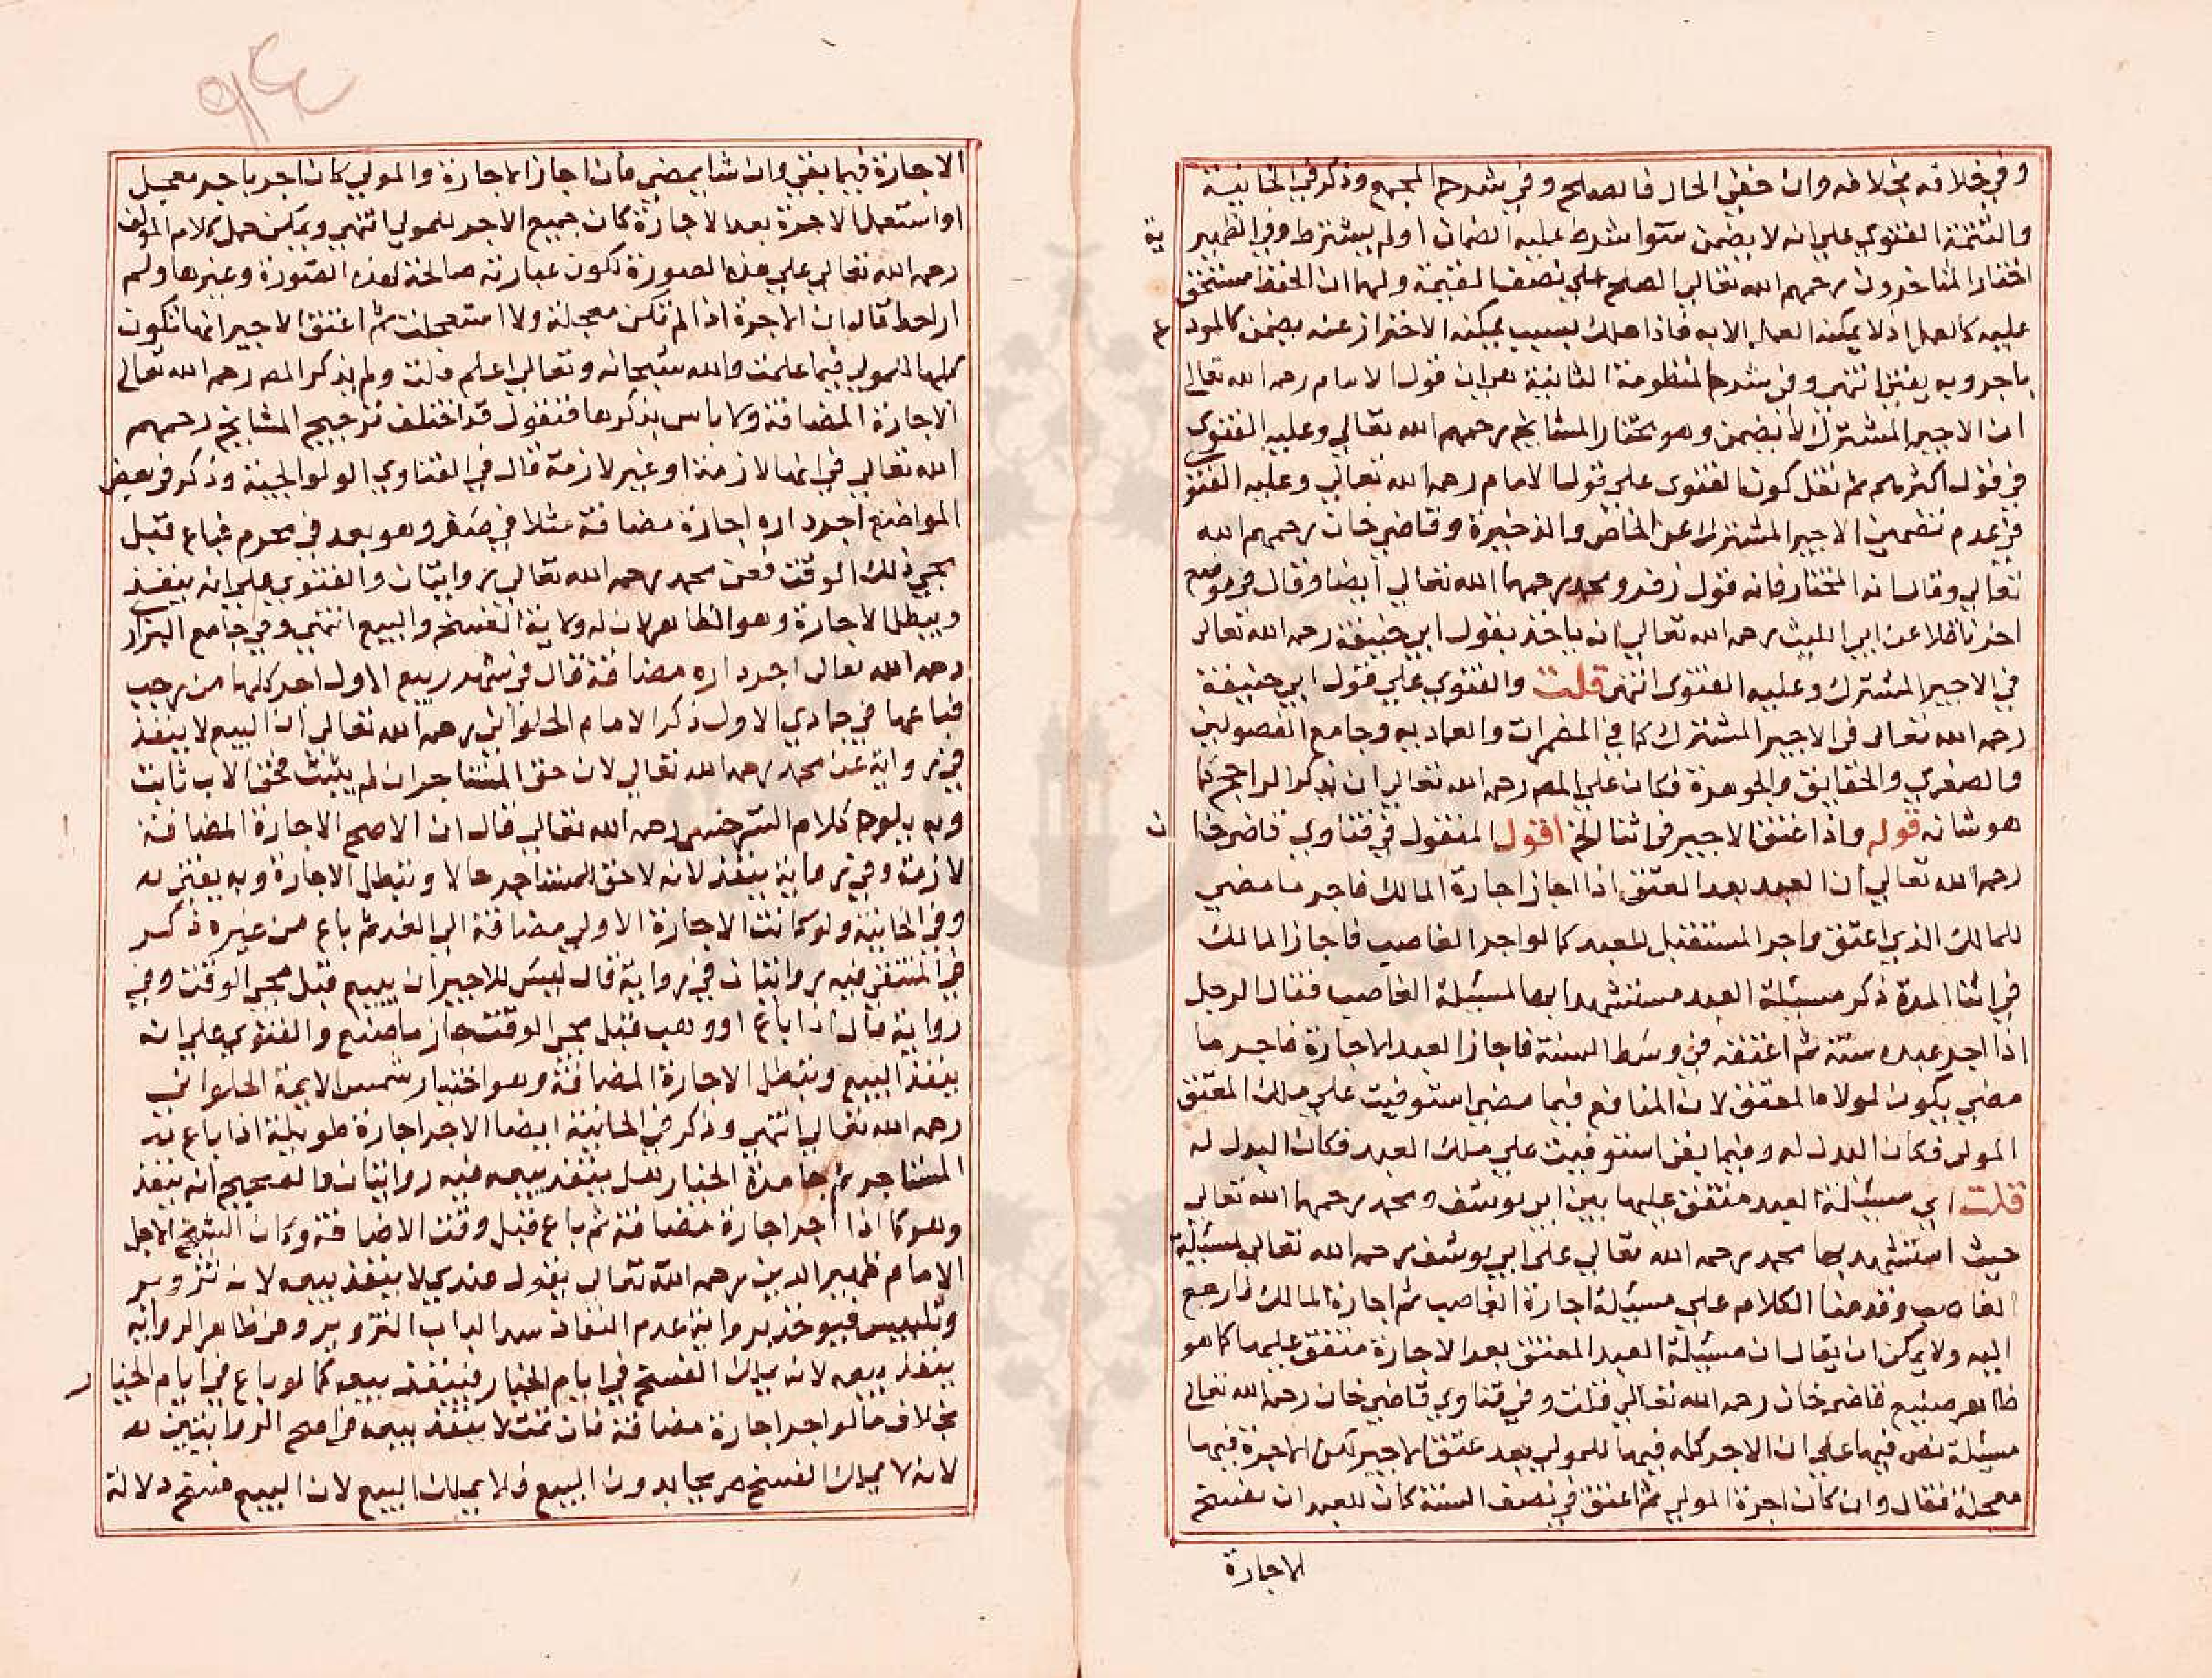 وفي خلافه بخلافه وان خفي الحال فالصلح وفي شرح المجمع وذكر في الخانية
والتتمة الفتوي علي انه لا يضمن سوا شرط عليه الضمان او لم يشترط وفي الظهيرية
اختار المتاخرون رحمهم الله تعالي الصلح علي نصف القيمة ولهما ان الحفظ مستحق
عليه كالعمل اذ لا يمكنه العمل الا به فاذا هلك بسبب يمكنه الاحتراز عنه يضمن كالمودع
باجر وبه يفتي انتهى وفي شرح المنظومة الثانية بعد ان قول الامام رحمه الله تعالي
ان الاجير المشترك لا يضمن وهو مختار المشايخ رحمهم الله تعالي وعليه الفتوي
في قول اكثرهم ثم نقل كون الفتوي علي قول الامام رحمه الله تعالي وعليه الفتوي
في عدم تضمين الاجير المشترك عن الخاصي والذخيرة وقاضي خان رحمهم الله
تعالي وقال انه المختار فانه قول زفر ومحمد رحمهما الله تعالي ايضا وقال في موضع
اخر ناقلا عن ابي الليث رحمه الله تعالي انه ياخذ بقول ابي حنيفة رحمه الله تعالي
في الاجير المشترك وعليه الفتوي انتهى قلت والفتوي علي قول ابي حنيفة
رحمه الله تعالي في الاجير المشترك كما في المضمرات والعمادية وجامع الفصولين
والصغري والحقايق والجوهرة فكان علي المص رحمه الله تعالي ان يذكر الراجح كما
هو شانه قوله واذا اعتق الاجير في اثنا الخ اقول المنقول في فتاوي قاضي خان
رحمه الله تعالي ان العبد بعد العتق اذا اجاز اجارة المالك فاجر ما مضي
للمالك الذي اعتق واجر المستقبل للعبد كما لو اجر الغاصب فاجاز المالك
في اثنا المدة ذكر مسئلة العبد مستشهدا بها لمسئلة الغاصب فقال الرجل
اذا اجر عبده سنة ثم اعتقه في وسط السنة فاجاز العبد الاجارة فاجر ما
مضي يكون لمولاه المعتق لان المنافع فيما مضي استوفيت علي ملك المعتق
المولي فكان البدل له وفيما بقي استوفيت علي ملك العبد فكان البدل له
قلت اي مسئلة العبد متفق عليها بين ابي يوسف ومحمد رحمهما الله تعالي
حيث استشهد بها محمد رحمه الله تعالي علي ابي يوسف رحمه الله تعالي لمسئلة
الغاصب وقدمنا الكلام علي مسئلة اجارة الغاصب ثم اجازة المالك فارجع
اليه ولا يمكن ان يقال ان مسئلة العبد المعتق بعد الاجارة متفق عليها كما هو
ظاهر صنيع قاضي خان رحمه الله تعالي قلت وفي فتاوي قاضي خان رحمه الله تعالي
مسئلة نص فيها علي ان الاجر كله فيها للمولي بعد عتق الاجير لكن الاجرة فيها
معجلة فقال وان كان اجرة المولي ثم اعتق في نصف السنة كان للعبد ان يفسخ
الاجارة
٩١٤
الاجارة فيما بقي وان شا يمضي فان اجاز الاجارة والمولي كان اجر باجر معجل
او استعمل الاجرة بعد الاجازة كان جميع الاجر للمولي انتهي ويمكن حمل كلام المولف
رحمه الله تعالي علي هذه الصورة لكون عبارته صالحة لهذه الصورة وغيرها ولم
ار احدا قال ان الاجرة اذا لم تكن معجلة ولا استعجلت ثم اعتق الاجير انها تكون
كلها للمولي فيما علمت والله سبحانه وتعالي اعلم قلت ولم يذكر المص رحمه الله تعالي
الاجارة المضافة ولا باس بذكرها فنقول قد اختلف ترجيح المشايخ رحمهم
الله تعالي في انها لازمة او غير لازمة قال في الفتاوي الولوالجية وذكر في بعض
المواضع اجر داره اجارة مضافة مثلا في صفر وهو بعد في محرم فباع قبل
مجي ذلك الوقت فعن محمد رحمه الله تعالي روايتان والفتوي علي انه ينفذ
ويبطل الاجارة وهو الظاهر لان له ولاية الفسخ والبيع انتهي وفي جامع البزازي
رحمه الله تعالي اجر داره مضافة فقال في شهر ربيع الاول اجر كلها من رجب
فباعها في جمادي الاول ذكر الامام الحلواني رحمه الله تعالي ان البيع لا ينفذ
في رواية عن محمد رحمه الله تعالي لان حق المستاجر ان لم يثبت فحق الاب ثابت
وبه يلوح كلام السرخسي رحمه الله تعالي فقال ان الاصح الاجارة المضافة
لازمة وفي رواية ينفذ لانه لا حق للمستاجر حالا وتبطل الاجارة وبه يفتي له
وفي الخانية ولو كانت الاجارة الاولي مضافة الي الغد ثم باع من غيره ذكر
في المنتقي فيه روايتان في رواية قال ليس للاجير ان يبيع قبل مجي الوقت وفي
رواية قال اذا باع او وهب قبل مجي الوقت جاز ما صنع والفتوي علي انه
ينفذ البيع وتبطل الاجارة المضافة وهو اختيار شمس الايمة الحلواني
رحمه الله تعالي انتهي وذكر في الخانية ايضا الاجر اجارة طويلة اذا باع
المستاجر ثم جا مدة الخيار هل ينفذ بيعه فيه روايتان والصحيح انه ينفذ
وهو كما اذا اجر اجارة مضافة ثم باع قبل وقت الاضافة وكان الشيخ الاجل
الامام ظهير الدين رحمه الله تعالي يقول عندي لا ينفذ بيعه لانه تزوير
وتلبيس فيوخذ برواية عدم النفاذ سدا لباب التزوير وفي ظاهر الرواية
ينفذ بيعه لانه يملك الفسخ في ايام الخيار فينفذ بيعه كما لو باع في ايام الخيار
بخلاف ما لو اجر اجارة مضافة فان ثمت لا ينفذ بيعه في اصح الروايتين
لانه لا يملك الفسخ صريحا بدون البيع فلا يملك البيع لان البيع فسخ دلالة